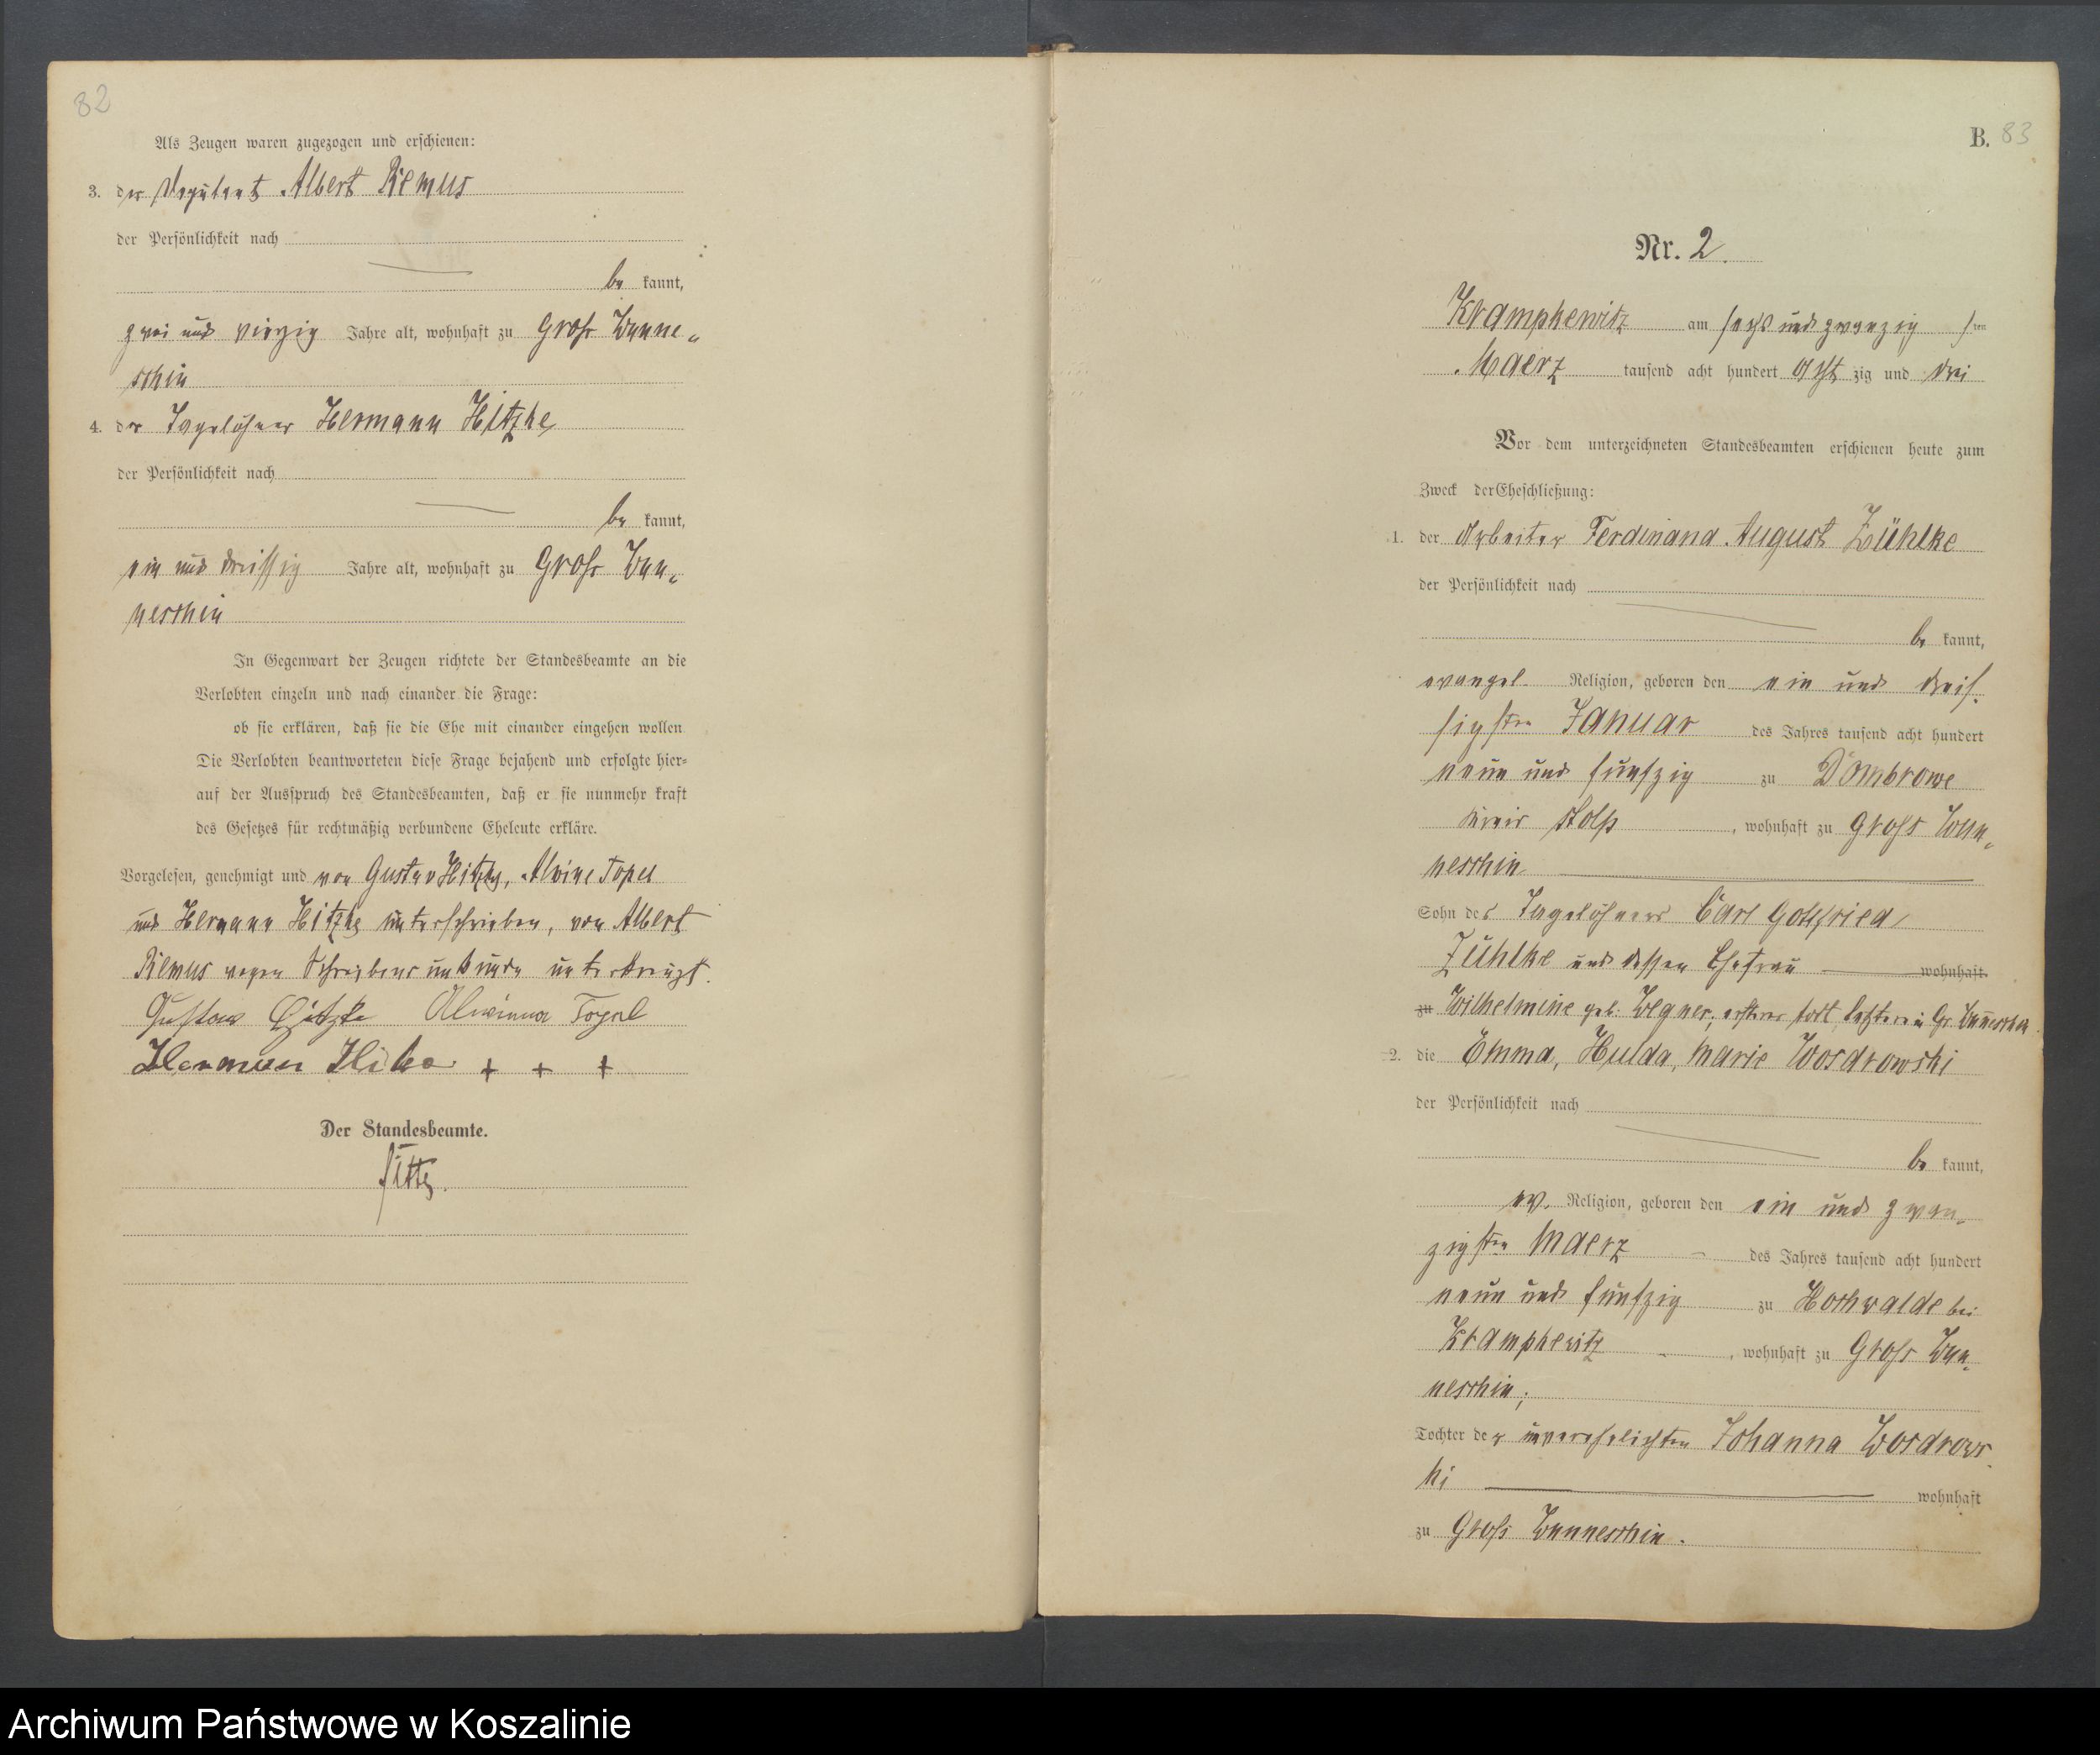 82
Als Zeugen waren zugezogen und erschienen:
3. der Deputant Albert Riemus
der Persönlichkeit nach
be kannt,
zwei und vierzig Jahre alt, wohnhaft zu Gross Wunne-
schin
4. der Tagelöhner Hermann Hitzke
der Persönlichkeit nach
be kannt,
ein und dreissig Jahre alt, wohnhaft zu Gross Wun-
neschin
In Gegenwart der Zeugen richtete der Standesbeamte an die
Verlobten einzeln und nach einander die Frage:
ob sie erklären, daß sie die Ehe mit einander eingehen wollen
Die Verlobten beantworteten diese Frage bejahend und erfolgte hier-
auf der Ausspruch des Standesbeamten, daß er sie nunmehr kraft
des Gesetzes für rechtmäßig verbundene Eheleute erkläre.
Vorgelesen, genehmigt und von Gustav Hitzke, Alvine Topel
und Hermann Hitzke unterschrieben, von Albert
Riemus wegen Schreibens unkunde unterkreuzt.
Gustav Hitzke Alwine Topel
Hermann + + +
Der Standesbeamte.
B. 83
Nr. 2.
Krampkewitz am sechs und zwanzig sten
Maerz tausend acht hundert acht zig und drei
Vor dem unterzeichneten Standesbeamten erschienen heute zum
Zweck der Eheschließung:
1. der Arbeiter Ferdinand August Zühlke
der Persönlichkeit nach
be kannt,
evangel. Religion, geboren den ein und dreis-
sigsten Januar des Jahres tausend acht hundert
neun und fünfzig zu Dombrowe
Kreis Stolp, wohnhaft zu Gross Wun-
neschin
Sohn des Tagelöhners Carl Gottfried
Zühlke und dessen Ehefrau wohnhaft
zu Wilhelmine geb. Wegner, ersterer todt, letztere in Gr. Wunneschin
2. die Emma, Hulda, Marie Wosdrowski
der Persönlichkeit nach
be kannt,
ev. Religion, geboren den ein und zwan-
zigsten Maerz des Jahres tausend acht hundert
neun und fünfzig zu Hochwalde bei
Krampkewitz, wohnhaft zu Gross Wun-
neschin,
Tochter der unverehelichten Johanna Wosdrows-
ki wohnhaft
zu Gross Wunneschin.
Archiwum Państwowe w Koszalinie